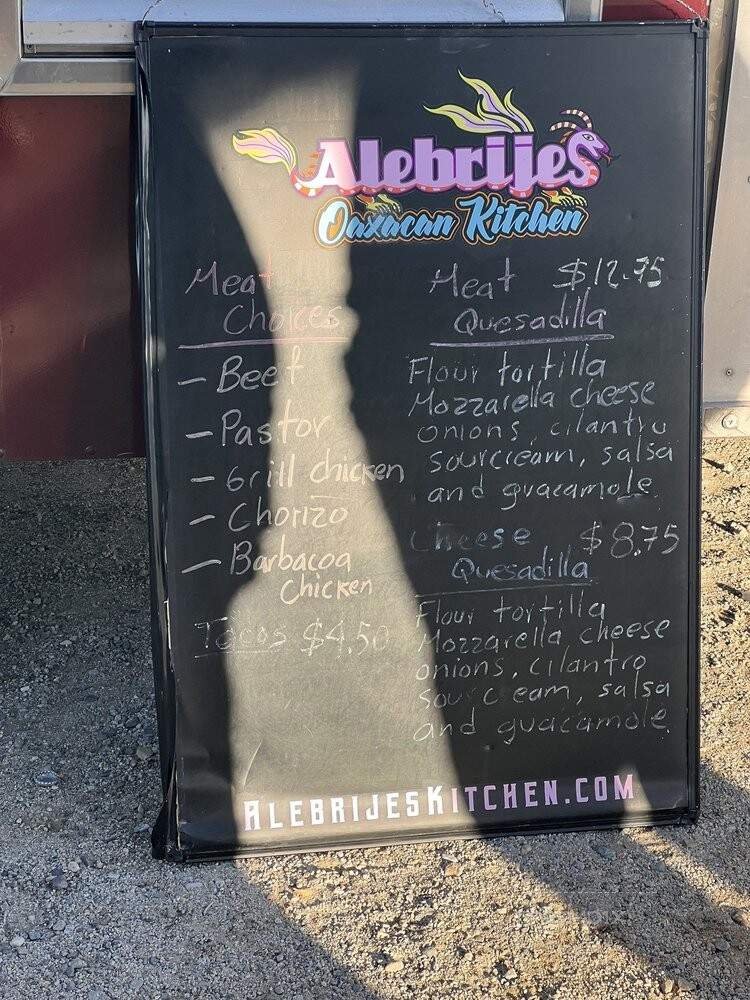 Alebrijes
Oaxacan Kitchen
Meat
Choices
- Beef
- Pastor
- Grill chicken
- Chorizo
- Barbacoa
Chicken
Tacos $4.50
Meat $12.75
Quesadilla
Flour tortilla
Mozzarella cheese
onions, cilantro
sourcream, salsa
and guacamole
Cheese $8.75
Quesadilla
Flour tortilla
Mozzarella cheese
onions, cilantro
sour cream, salsa
and guacamole
ALEBRIJESKITCHEN.COM